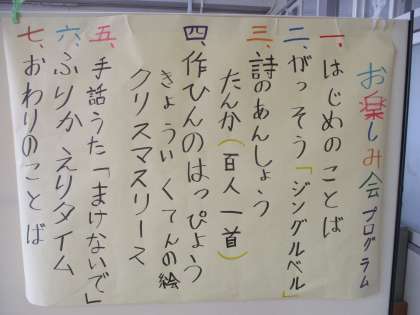 お楽しみ会プログラム
一、はじめのことば
二、がっそう「ジングルベル」
三、詩のあんしょう
たんか(百人一首)
四、作ひんのはっぴょう
きょういくてんの絵
クリスマスリース
五、手話うた「まけないで」
六、ふりかえりタイム
七、おわりのことば